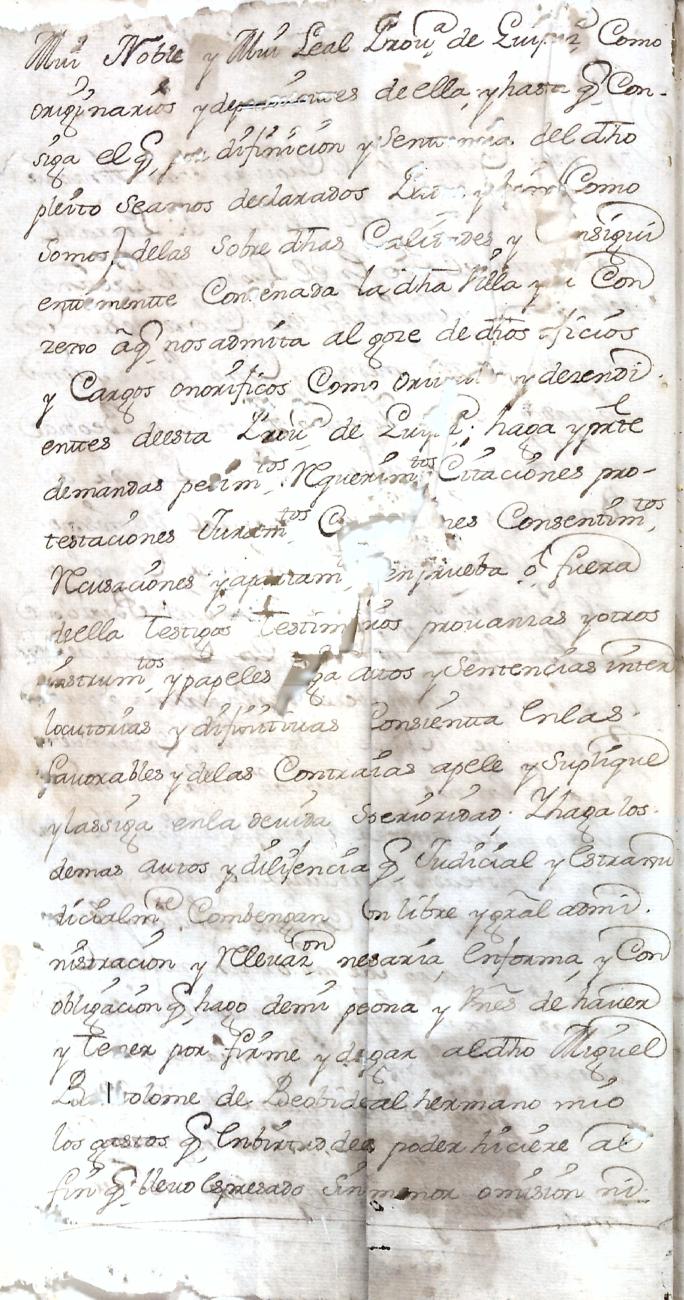 Mui Noble y Mui Leal Prou.ª de Guip.ª Como
originarios y de ella, y hasta q.e Con-
siga el q.e por difinicion y Sentencia del dho
pleito seamos declarados y Como
somos] delas sobre dhas Calidades y Consigui
entemente Condenada la dha Villa y Con
zejo â q.e nos admita al goze de dhos oficios
y Cargos onorificos Como y dezendi.
entes deesta Prou.ª de Guip.ª; haga y prste
demandas pedim.tos Requerim.tos Citaciones pro-
testaciones Juram.tos nes Consentim.tos
Recusaciones y apartam en prueba ô fuera
de ella testigos testimonios prouanzas y otros
instrum.tos y papeles oiga autos y Sentencias inter
locutorias y difinitiuas Consienta en las.
fauorables y delas Contrarias apele y Suplique
y las siga en la deuida Sperioridad. Y haga los.
demas autos y dilijencia q.e Judicial y Estraju
dicialm.te Combengan Con libre y gral admi.
nistracion y Releuaz.on nesaria, en forma, y Con
obligacion q.e hago de mi psona y Vnes de hauer
y tener por firme y de pagar al dho Miguel
Bartolome de Beobide al hermano mio
los gastos q.e en birtud de este poder hiciere al
fin q.e lleuo Espresado Sin menor omision ni